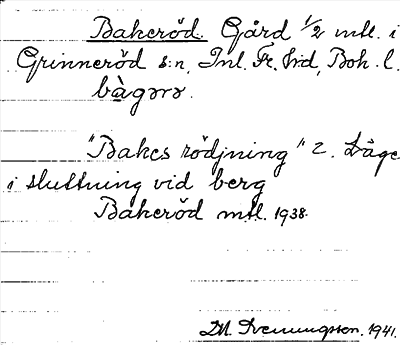 Bakeröd. Gård 1/2 mtl. i
Grinneröd s:n, Inl. Fr. hd, Boh. l.
bàgərə.
"Bakes rödjning" 2. Läge
i sluttning vid berg
Bakeröd mtl. 1938.
M. Svenungsson. 1941.